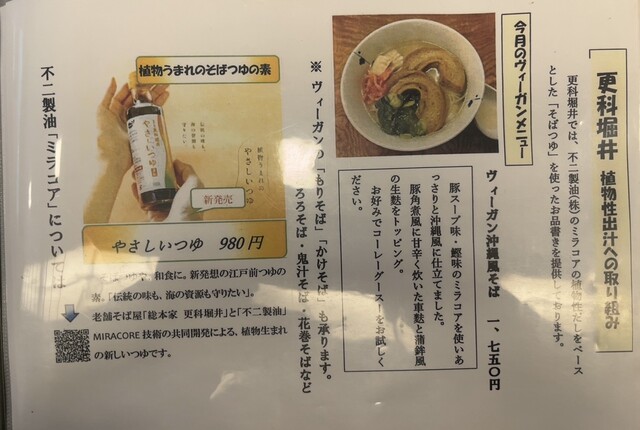 更科堀井 植物性出汁への取り組み
更科堀井では、不二製油(株)のミラコアの植物性だしをベース
とした「そばつゆ」を使ったお品書きを提供しております。
今月のヴィーガンメニュー
ヴィーガン沖縄風そば 一、七五〇円
豚スープ味・鰹味のミラコアを使いあ
っさりと沖縄風に仕立てました。
豚角煮風に甘辛く炊いた車麩と蒲鉾風
の生麩をトッピング。
お好みでコーレーグースーをお試しく
ださい。
※ ヴィーガンの「もりそば」「かけそば」も承ります。
ろそば・鬼汁そば・花巻そばなど
植物うまれのそばつゆの素
やさしいつゆ
植物うまれの
やさしいつゆ
新発売
やさしいつゆ 980円
和食に。新発想の江戸前つゆの
素。「伝統の味も、海の資源も守りたい」。
老舗そば屋「総本家 更科堀井」と「不二製油」
MIRACORE 技術の共同開発による、植物生まれ
の新しいつゆです。
不二製油「ミラコア」については